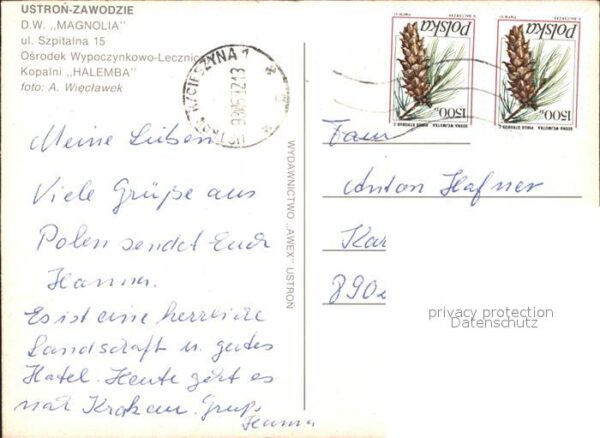 USTROŃ-ZAWODZIE
D.W. „MAGNOLIA"
ul. Szpitalna 15
Ośrodek Wypoczynkowo-Lecznic
Kopalni „HALEMBA"
foto: A. Więcławek
Meine Lieben
Viele Grüße aus
Polen sendet Euch
Hanna.
Es ist eine herrliche
Landschaft u. gutes
Hotel. Heute geht es
nach Krakau. Gruß
Hanna
WYDAWNICTWO „AWEX" USTROŃ
Polska
1500 zł
SOSNA WEJMUTKA PINUS STROBUS L.
Polska
1500 zł
SOSNA WEJMUTKA PINUS STROBUS L.
Fam
Anton Hafner
Kar
890
privacy protection
Datenschutz